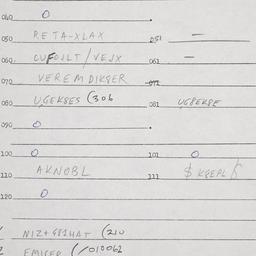 040 0
050 RETA-XLAX 051 —
060 CUFOJLT/VEJX 061 —
070 VEREMDIKGER 072
080 UGEKSES (306 081 UGPEKPE
090 0
100 0 101 0
110 AKNOBL 111 $ KGEPL
120 0
NIZ+GB1HAT (210
EMICEP (/010062